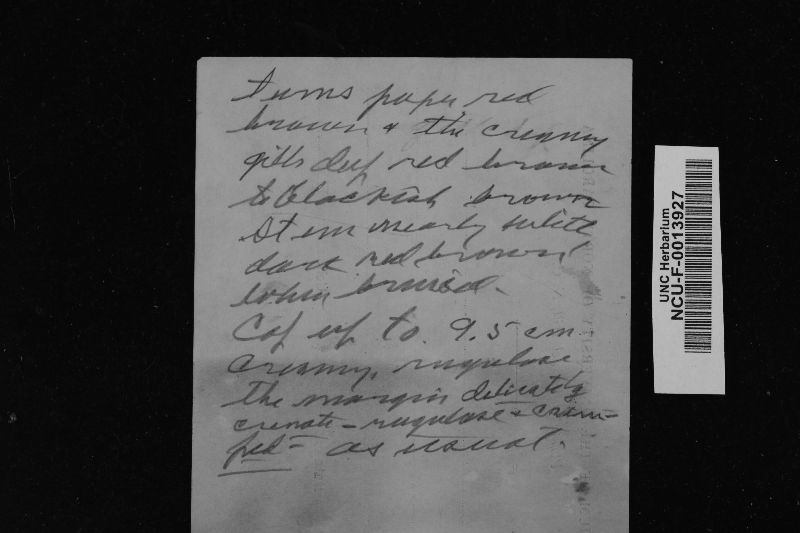 turns paper red
brown & the creamy
gills deep red brown
to blackish brown
Stem nearly white
dark red brown
when bruised.
Cap up to 9.5 cm
creamy, rugulose
the margin delicately
crenate-rugulose & crim-
ped - as usual.
UNC Herbarium
NCU-F-0013927